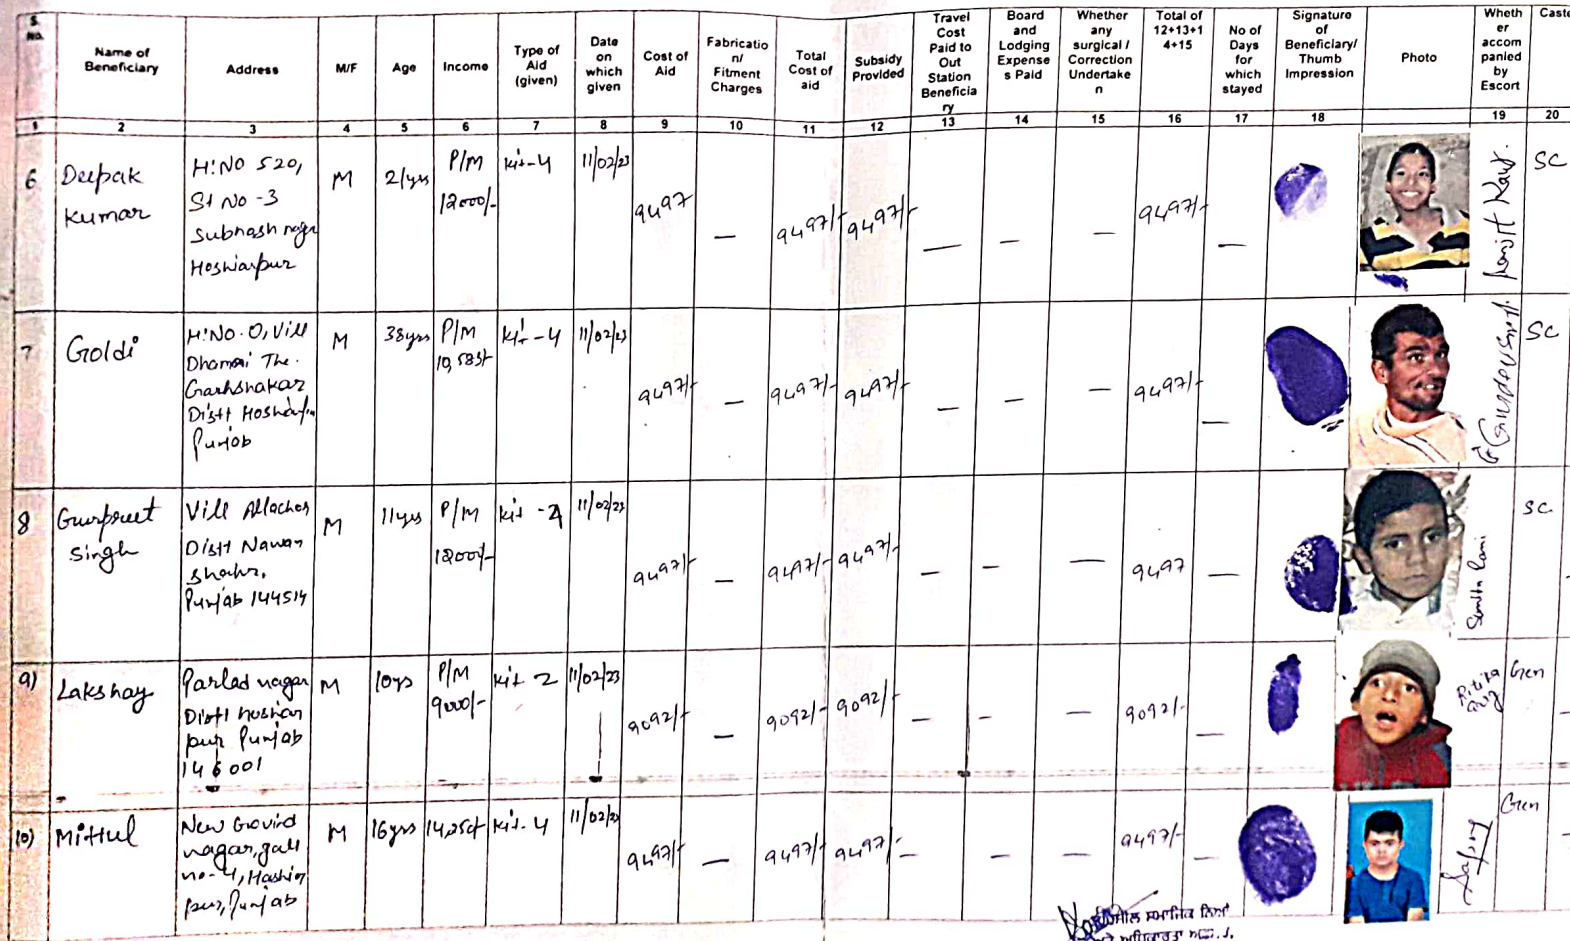 S. No.
Name of Beneficiary
Address
M/F
Age
Income
Type of Aid (given)
Date on which given
Cost of Aid
Fabricatio n/ Fitment Charges
Total Cost of aid
Subsidy Provided
Travel Cost Paid to Out Station Beneficia ry
Board and Lodging Expense s Paid
Whether any surgical / Correction Undertake n
Total of 12+13+1 4+15
No of Days for which stayed
Signature of Beneficiary/ Thumb Impression
Photo
Wheth er accom panied by Escort
Caste
1 2 3 4 5 6 7 8 9 10 11 12 13 14 15 16 17 18 19 20
6 Deepak Kumar
H.NO 520,
St No -3
Subhash nagar
Hoshiarpur
M 21yrs P/M 12000/- Kit-4 11/02/23 9497 — 9497/- 9497/- — — — 9497/- — Ranjit Kaur. SC
7 Goldi
H.No.0, Vill
Dhamai The.
Garhshakar
Distt Hoshiarpur
Punjab
M 38yrs P/M Kit-4 11/02/23 9497/- — 9497/- 9497/- — — — 9497/- — SC
8 Gurpreet Singh
Vill
Distt Nawan
shahr,
Punjab 144514
M 11yrs P/M 12000/- Kit-4 11/02/23 9497/- — 9497/- 9497/- — — — 9497 — Rani SC
9) Lakshay
Parlad nagar
Distt hoshiar
pur Punjab
146001
M 10yrs P/M 9000/- Kit 2 11/02/23 9092/- — 9092/- 9092/- — — — 9092/- — Ritika Gen
10) Mittul
New Govind
nagar, gali
no-4, Hoshiar
pur, Punjab
M 16yrs Kit-4 11/02/23 9497/- — 9497/- 9497/- — — — 9497/- — Gen
ਸਮਾਜਿਕ